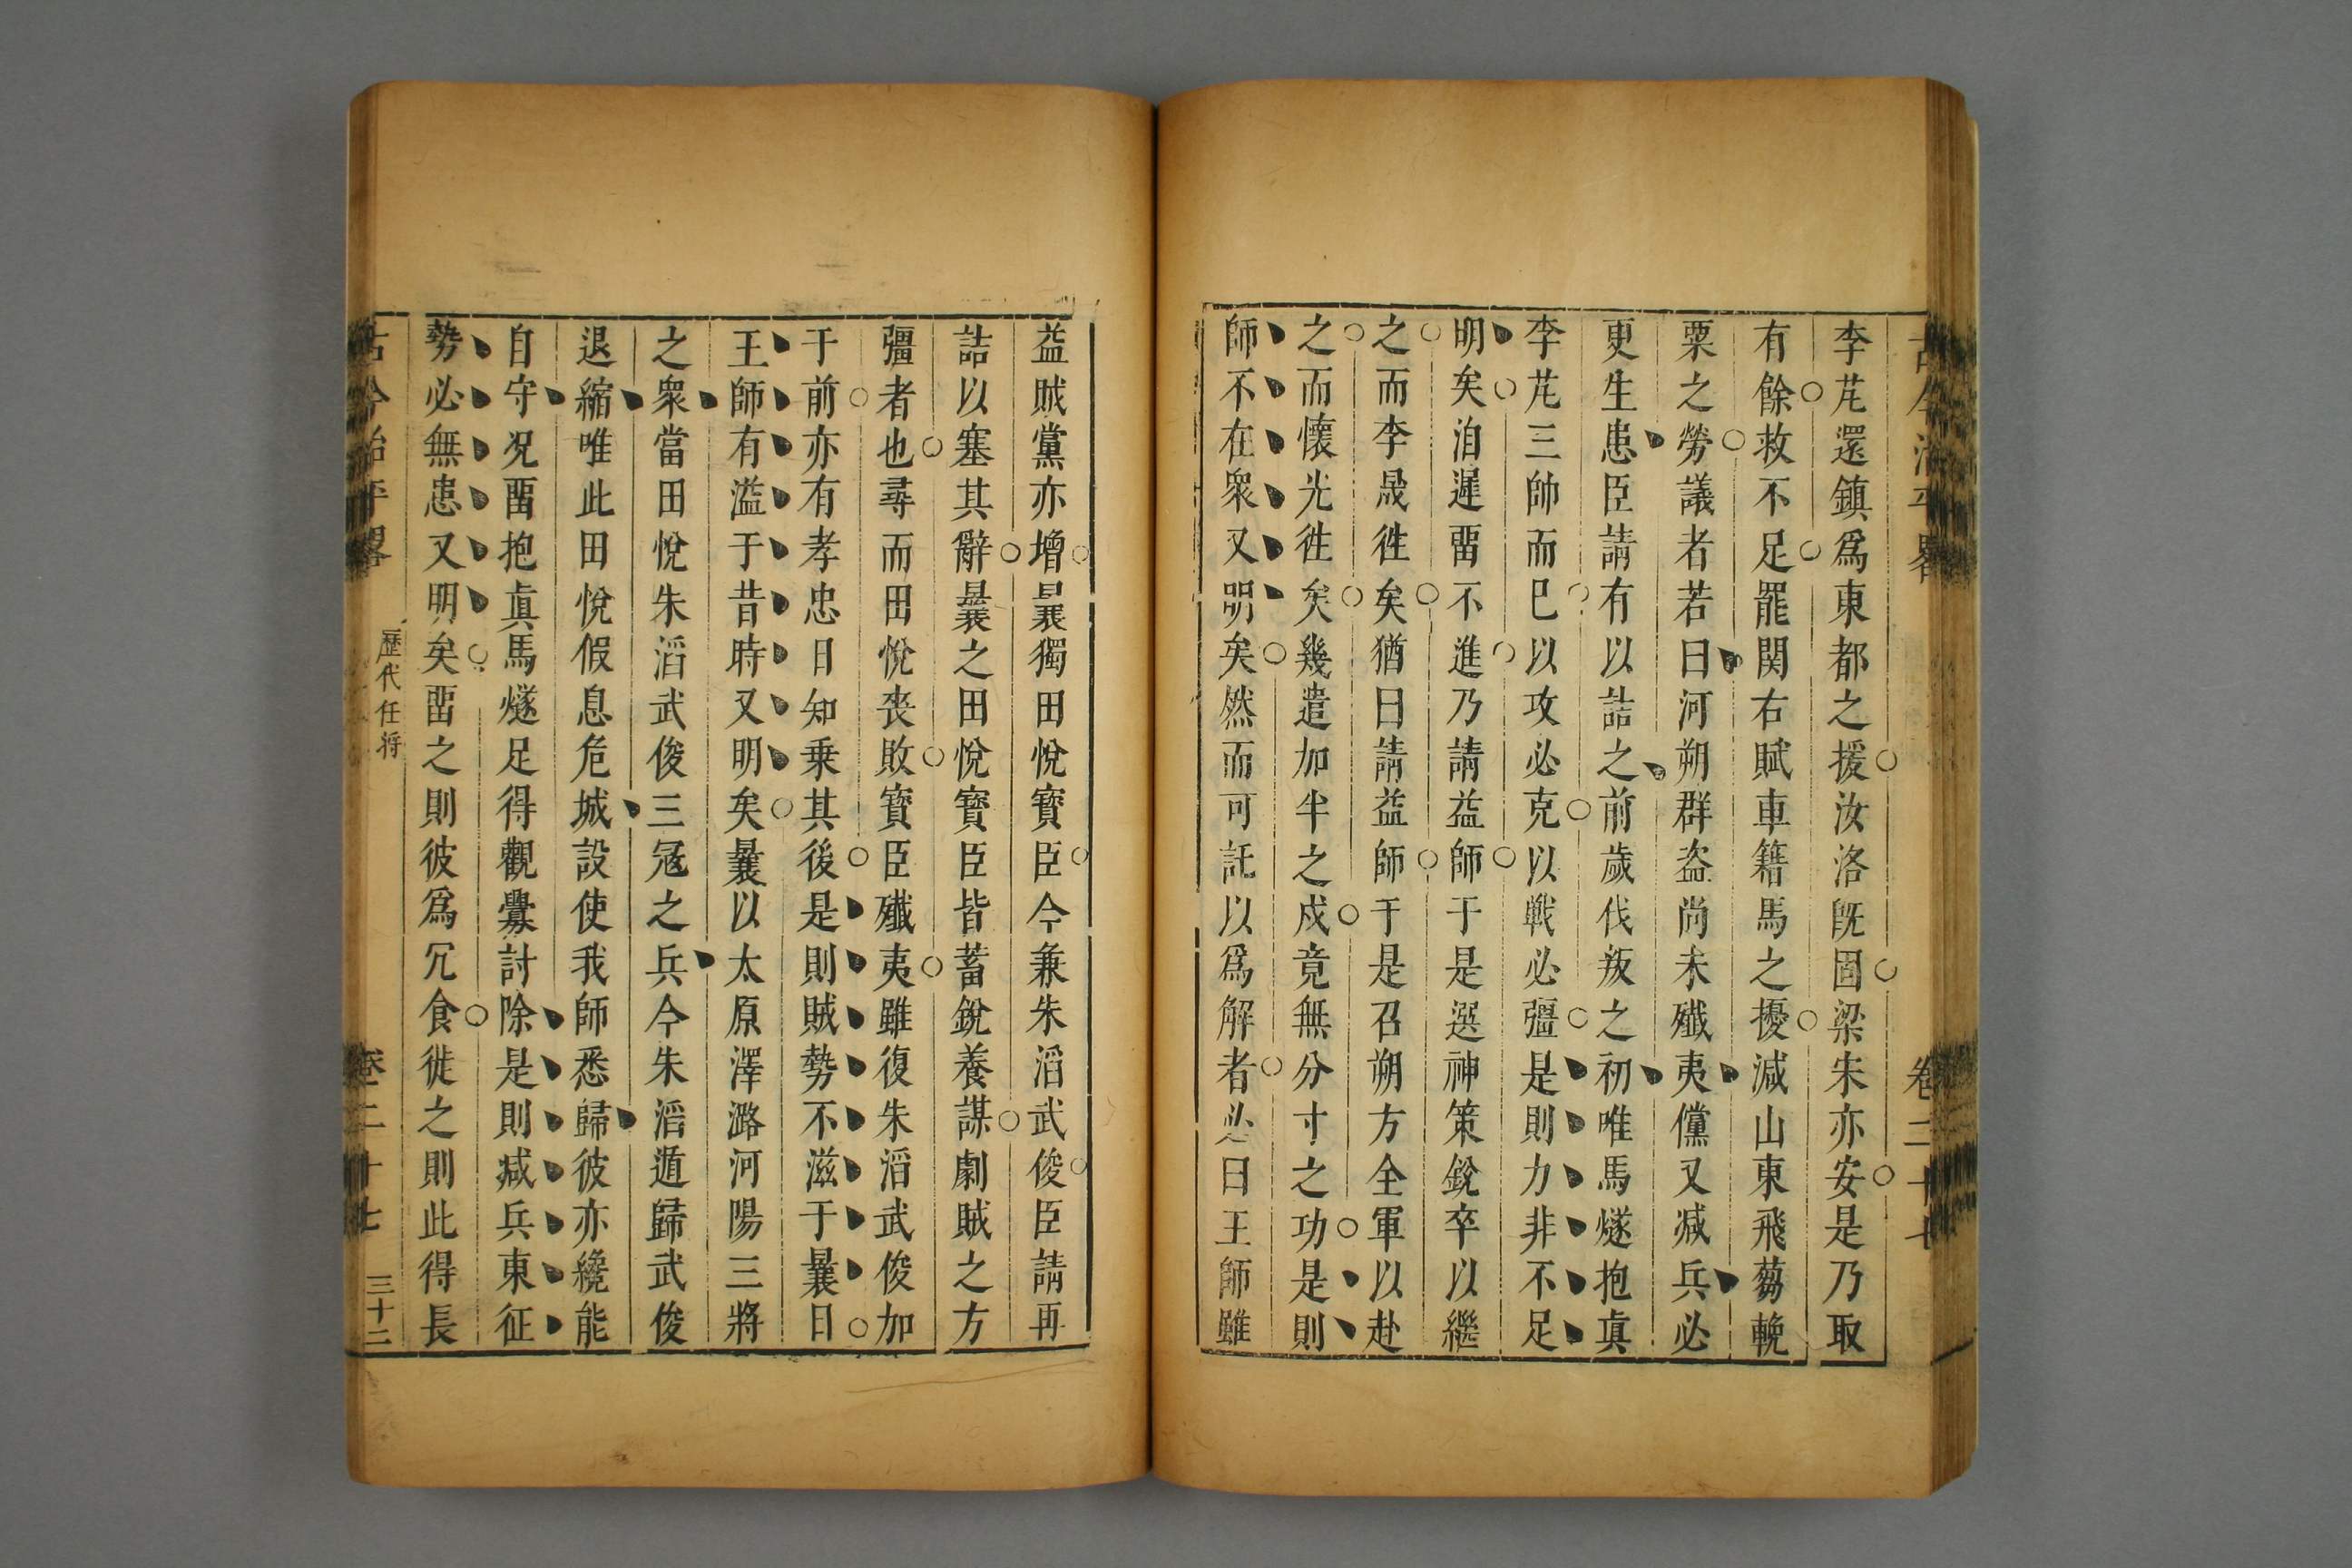 古今治平畧
卷二十七
李芃還鎮爲東都之援汝洛旣固梁朱亦安是乃取
有餘救不足罷関右賦車籍馬之擾減山東飛蒭輓
粟之勞議者若曰河朔群盗尚未殲夷儻又减兵必
更生患臣請有以詰之前歲伐叛之初唯馬燧抱眞
李芃三帥而已以攻必克以戰必彊是則力非不足
明矣洎遲畱不進乃請益師于是選神策銳卒以繼
之而李晟徃矣猶曰請益師于是召朔方全軍以赴
之而懷光徃矣幾遣加半之戍竟無分寸之功是則
師不在衆又明矣然而可託以爲解者必曰王師雖
益賊黨亦增曩獨田悅寶臣今兼朱滔武俊臣請再
詰以塞其辭曩之田悅寶臣皆蓄銳養謀劇賊之方
彊者也尋而田悅喪敗寶臣殲夷雖復朱滔武俊加
于前亦有孝忠日知乗其後是則賊勢不滋于曩日
王師有溢于昔時又明矣曩以太原澤潞河陽三將
之衆當田悅朱滔武俊三冦之兵今朱滔遁歸武俊
退縮唯此田悅假息危城設使我師悉歸彼亦纔能
自守况畱抱眞馬燧足得觀釁討除是則减兵東征
勢必無患又明矣畱之則彼爲冗食徙之則此得長
古今治平畧
歷代任將
卷二十七
三十二